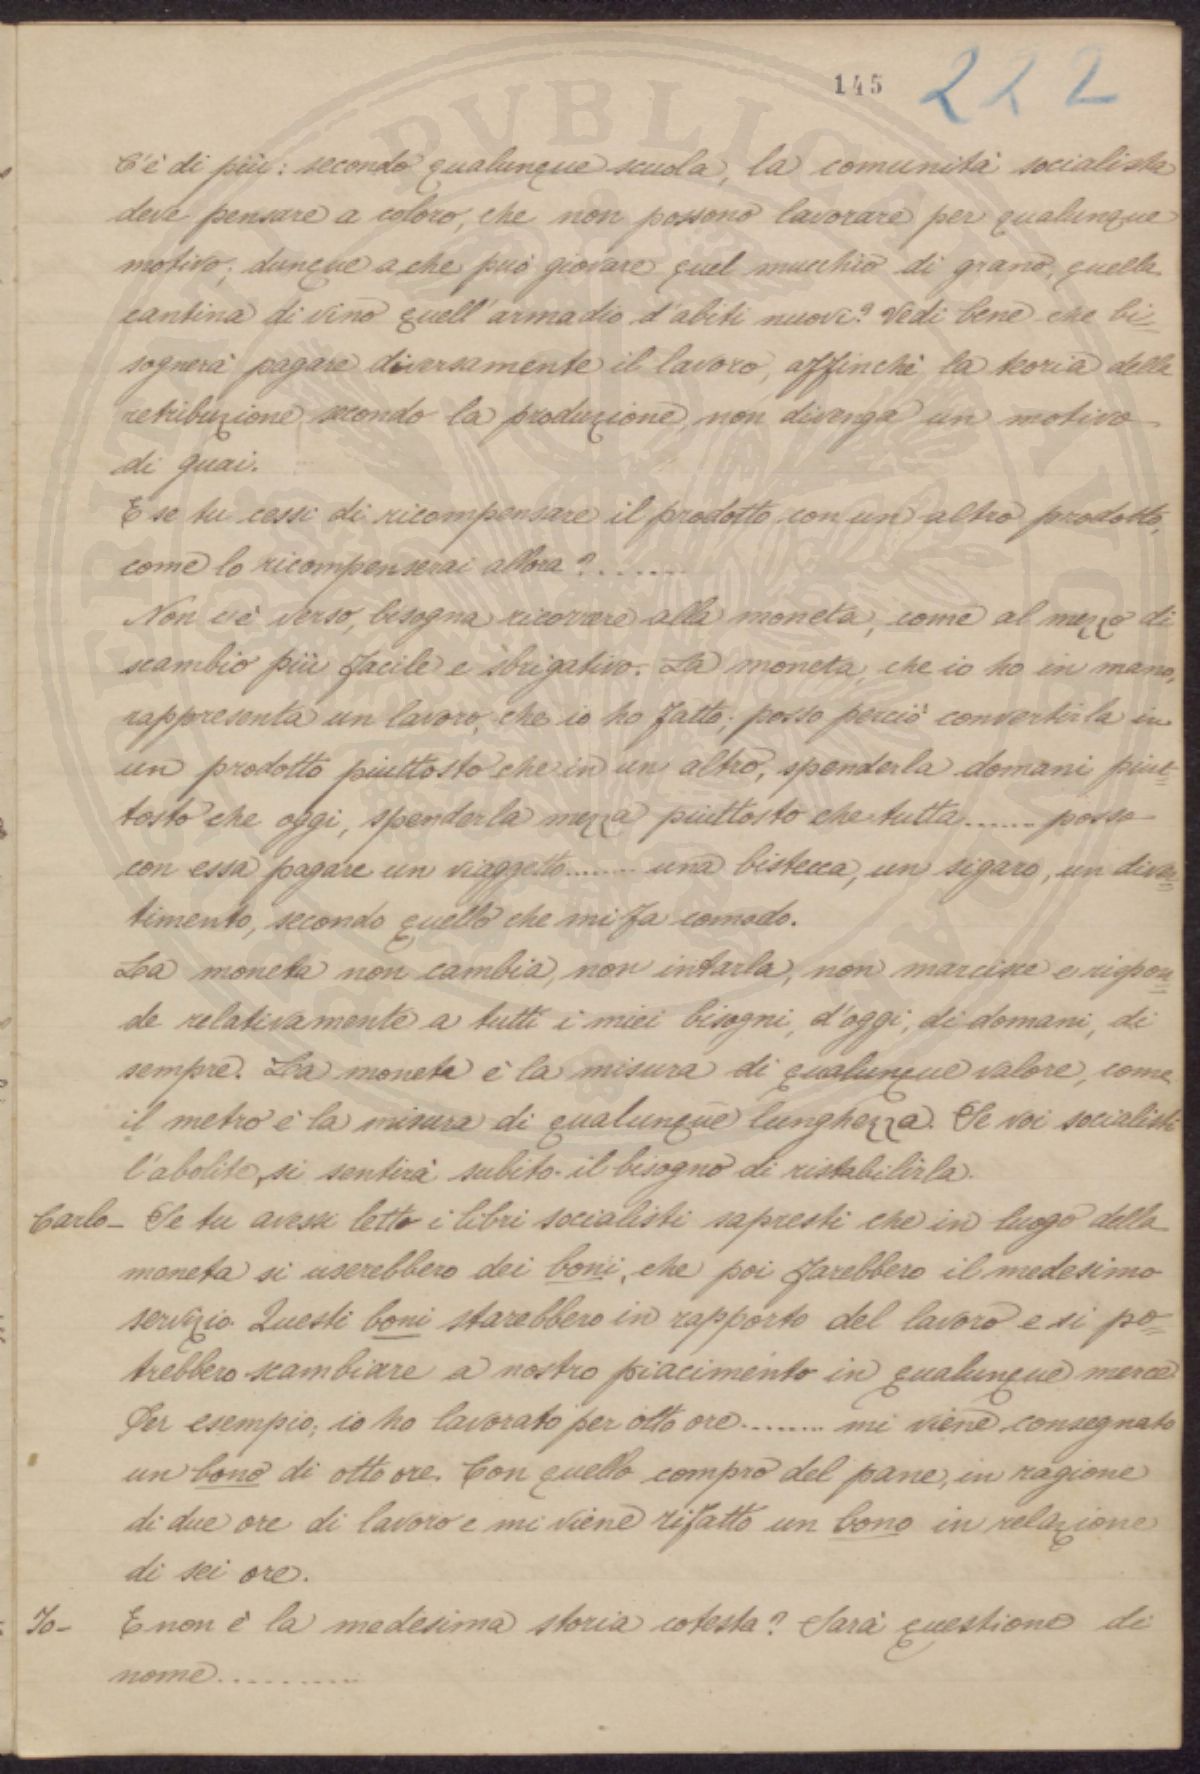 145 222
C'è di più: secondo qualunque scuola, la comunità socialista
deve pensare a coloro, che non possono lavorare per qualunque
motivo; dunque a che può giovare quel mucchio di grano, quella
cantina di vino quell'armadio d'abiti nuovi? Vedi bene che bi=
sognerà pagare diversamente il lavoro, affinchè la teoria della
retribuzione secondo la produzione, non divenga un motivo
di guai.
E se tu cessi di ricompensare il prodotto con un altro prodotto,
come lo ricompenserai allora?.......
Non c'è verso, bisogna ricorrere alla moneta, come al mezzo di
scambio più facile e sbrigativo. La moneta, che io ho in mano,
rappresenta un lavoro, che io ho fatto; posso perciò convertirla in
un prodotto piuttosto che in un altro, spenderla domani piut=
tosto che oggi, spenderla mezza piuttosto che tutta...... posso
con essa pagare un viaggetto....... una bistecca, un sigaro, un diver=
timento, secondo quello che mi fa comodo.
La moneta non cambia, non intarla, non marcisce e rispon=
de relativamente a tutti i miei bisogni, d'oggi, di domani, di
sempre. La moneta è la misura di qualunque valore, come
il metro è la misura di qualunque lunghezza. Se voi socialisti
l'abolite, si sentirà subito il bisogno di ristabilirla.
Carlo- Se tu avessi letto i libri socialisti sapresti che in luogo della
moneta si userebbero dei boni, che poi farebbero il medesimo
servizio. Questi boni starebbero in rapporto del lavoro e si po=
trebbero scambiare a nostro piacimento in qualunque merce.
Per esempio; io ho lavorato per otto ore........ mi viene consegnato
un bono di otto ore. Con quello compro del pane, in ragione
di due ore di lavoro e mi viene rifatto un bono in relazione
di sei ore.
Io- E non è la medesima storia cotesta? Sarà questione di
nome..........